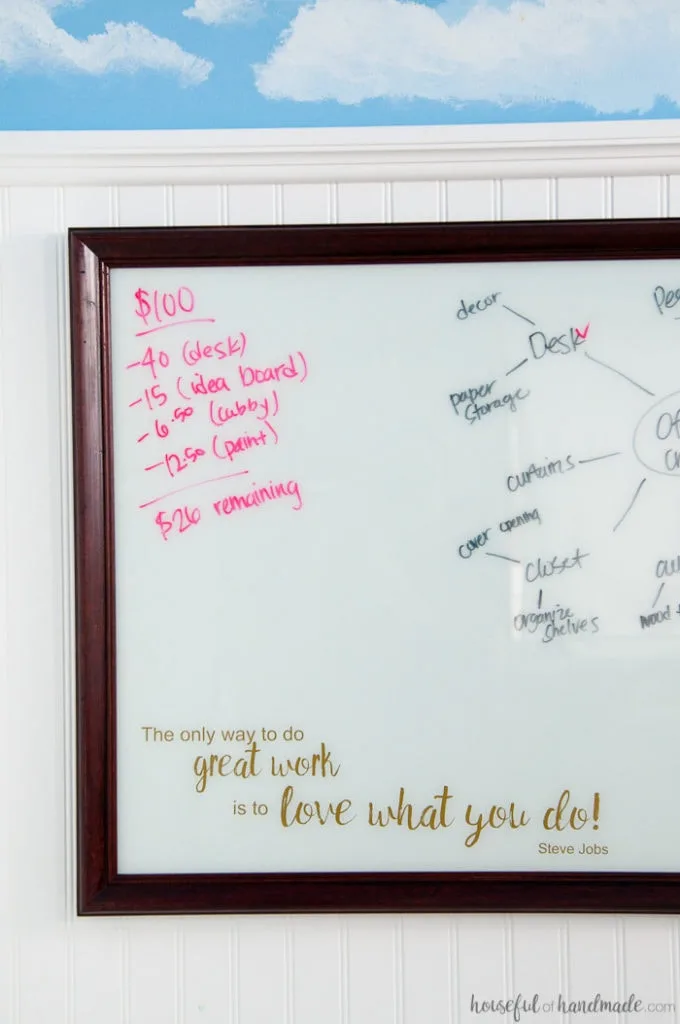 $100
-40 (desk)
-15 (idea board)
-6.50 (cubby)
-12.50 (paint)
$26 remaining
decor
Desk
paper
storage
curtains
cover opening
closet
organize
shelves
The only way to do
great work
is to love what you do!
Steve Jobs
houseful of handmade.com